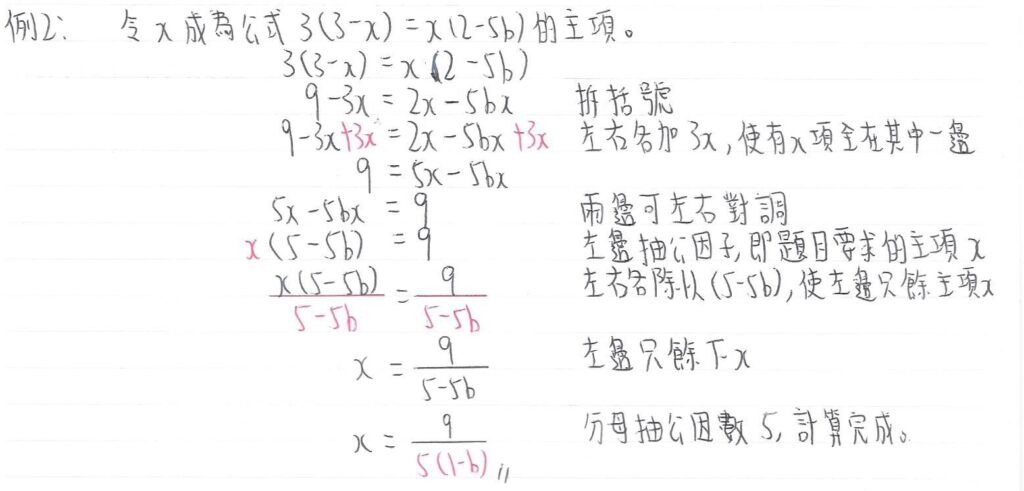 例2: 令 x 成為公式 3(3-x) = x(2-5b) 的主項。
3(3-x) = x(2-5b)
9-3x = 2x-5bx 拆括號
9-3x+3x = 2x-5bx+3x 左右各加 3x, 使有x項全在其中一邊
9 = 5x-5bx
5x-5bx = 9 兩邊可左右對調
x(5-5b) = 9 左邊抽公因子, 即題目要求的主項 x
x(5-5b)/5-5b = 9/5-5b 左右各除以(5-5b), 使左邊只餘主項x
x = 9/5-5b 左邊只餘下x
x = 9/5(1-b) 分母抽公因數 5, 計算完成。